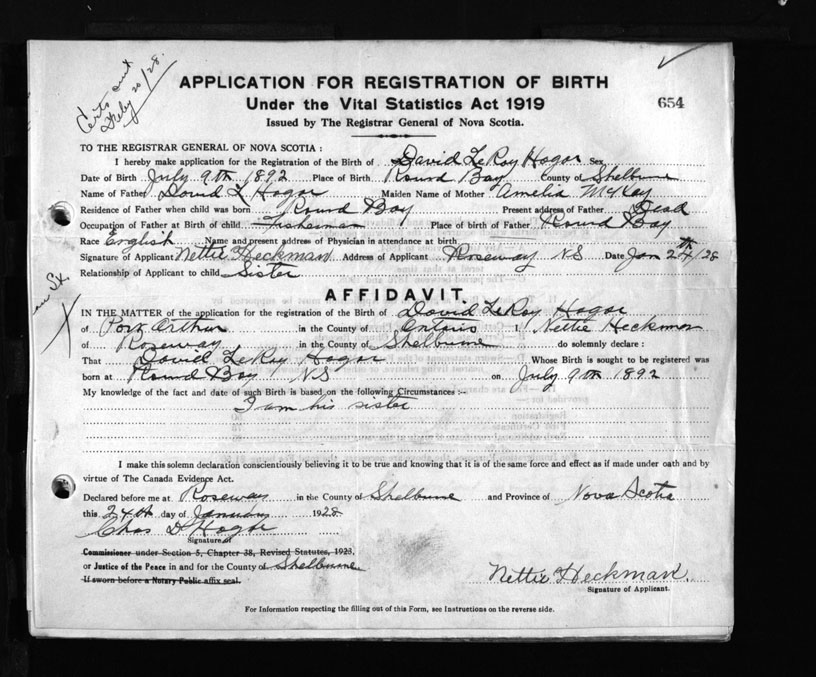 Certs sent
Feby 20/28.
APPLICATION FOR REGISTRATION OF BIRTH
Under the Vital Statistics Act 1919
654
Issued by The Registrar General of Nova Scotia.
TO THE REGISTRAR GENERAL OF NOVA SCOTIA :
I hereby make application for the Registration of the Birth of David LeRoy Hagar Sex
Date of Birth July 9th 1892 Place of Birth Round Bay County of Shelburne
Name of Father David L Hagar Maiden Name of Mother Amelia McKay
Residence of Father when child was born Round Bay Present address of Father Dead
Occupation of Father at Birth of child Fisherman Place of birth of Father Round Bay
Race English Name and present address of Physician in attendance at birth
Signature of Applicant Nettie Heckman Address of Applicant Roseway NS Date Jan 24th/28
Relationship of Applicant to child Sister
AFFIDAVIT.
IN THE MATTER of the application for the registration of the Birth of David LeRoy Hagar
of Port Arthur in the County of Ontario I, Nettie Heckman
of Roseway in the County of Shelburne do solemnly declare :
That David LeRoy Hagar Whose Birth is sought to be registered was
born at Round Bay NS on July 9th 1892
My knowledge of the fact and date of such Birth is based on the following Circumstances :—
I am his sister
I make this solemn declaration conscientiously believing it to be true and knowing that it is of the same force and effect as if made under oath and by
virtue of The Canada Evidence Act.
Declared before me at Roseway in the County of Shelburne and Province of Nova Scotia
this 24th day of January 1928
Chas D Hagar
Signature of
Commissioner under Section 5, Chapter 38, Revised Statutes, 1923,
or Justice of the Peace in and for the County of Shelburne
If sworn before a Notary Public affix seal.
Nettie Heckman.
Signature of Applicant.
For Information respecting the filling out of this Form, see Instructions on the reverse side.